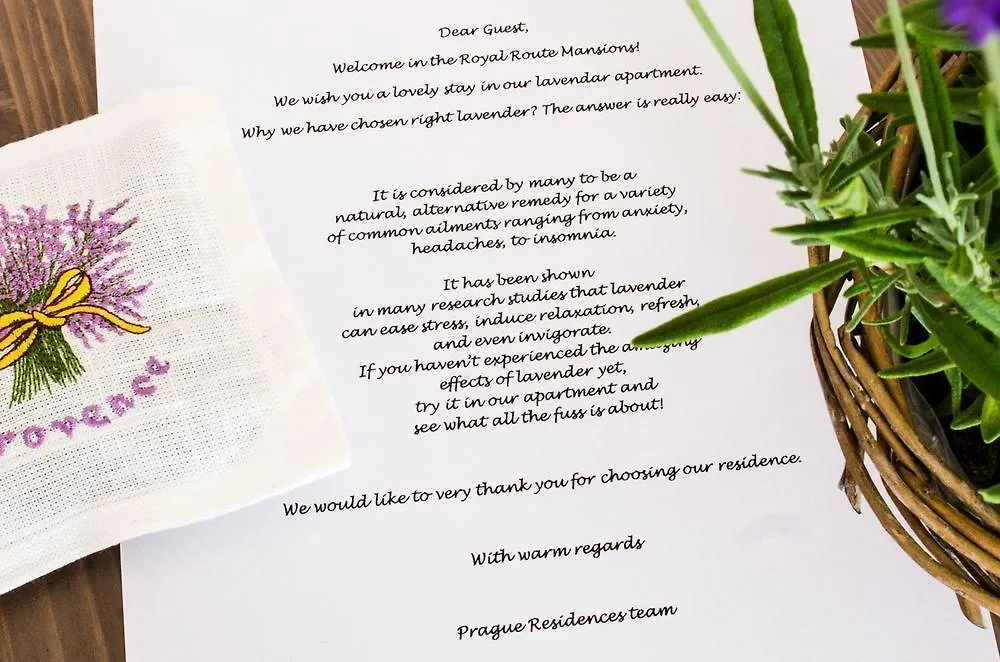 Dear Guest,
Welcome in the Royal Route Mansions!
We wish you a lovely stay in our lavendar apartment.
Why we have chosen right lavender? The answer is really easy:
It is considered by many to be a
natural, alternative remedy for a variety
of common ailments ranging from anxiety,
headaches, to insomnia.
It has been shown
in many research studies that lavender
can ease stress, induce relaxation, refresh,
and even invigorate.
If you haven't experienced the amazing
effects of lavender yet,
try it in our apartment and
see what all the fuss is about!
We would like to very thank you for choosing our residence.
With warm regards
Prague Residences team
rovence